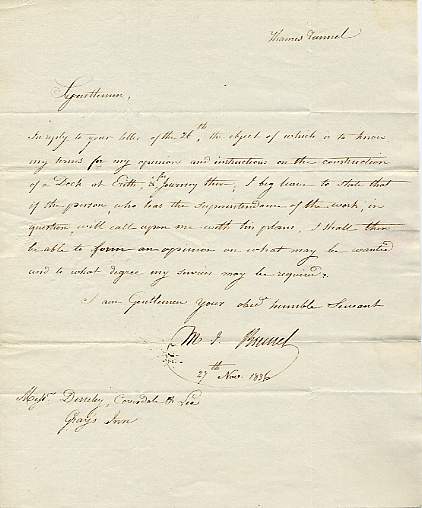 Thames Tunnel
Gentlemen,
In reply to your letter of the 26th, the object of which is to know
my terms for my opinion and instructions on the construction
of a Dock at Erith, & the Journey there, I beg leave to state that
if the person, who has the superintendance of the work, in
question will call upon me with his plans, I shall then
be able to form an opinion on what may be wanted
and to what degree my services may be required.
I am Gentlemen Your obed humble Servant
M I Brunel
27th Nov 1836
Messrs & Lee
Grays Inn